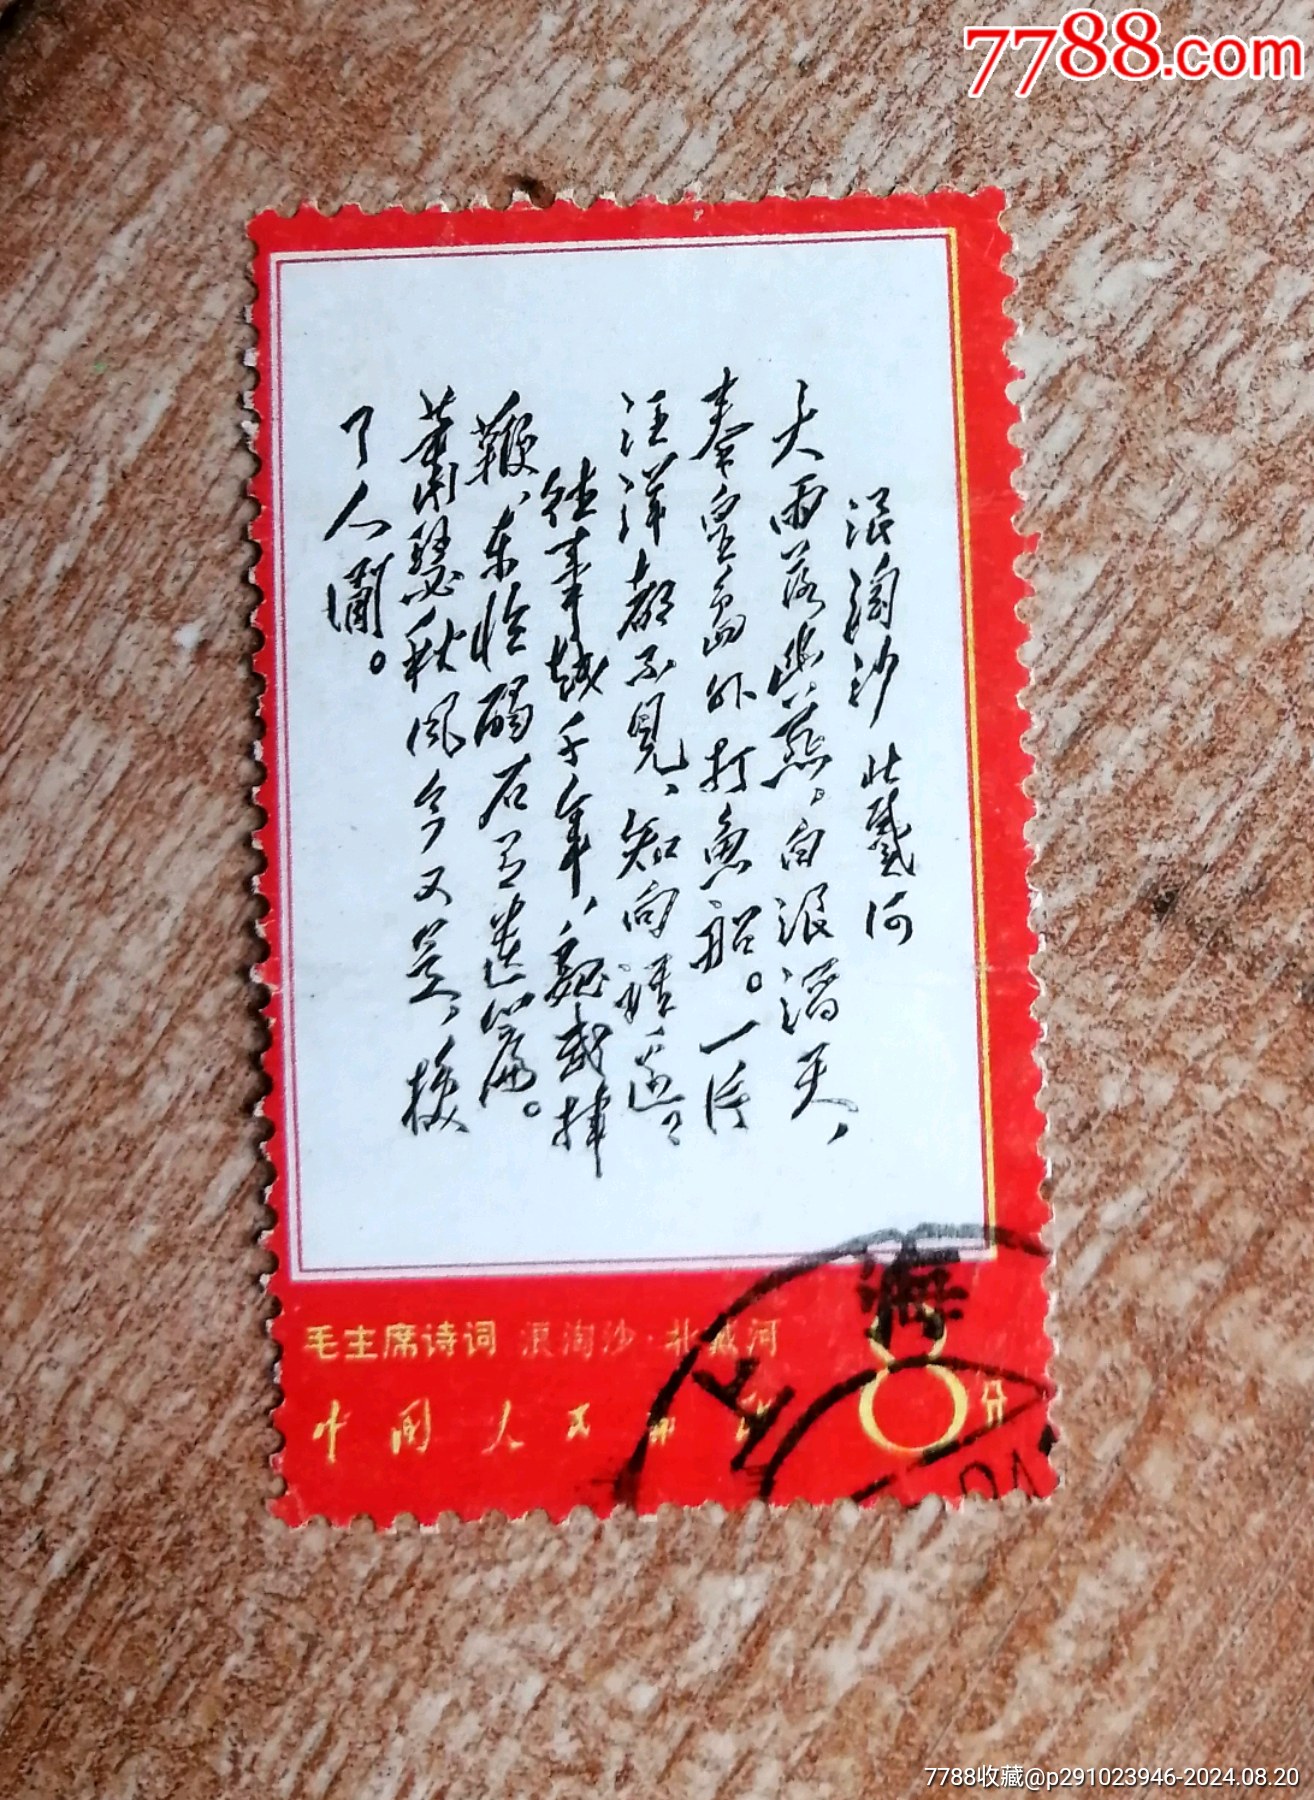 7788.com
浪淘沙 北戴河
大雨落幽燕。白浪滔天,
秦皇岛外打鱼船。一片
汪洋都不见、知向谁边?
往事越千年,魏武挥
鞭、东临碣石有遗篇。
萧瑟秋风今又是,换
了人间。
毛主席诗词 浪淘沙·北戴河
8分
中国人民邮政
上海
7788收藏@p291023946-2024.08.20